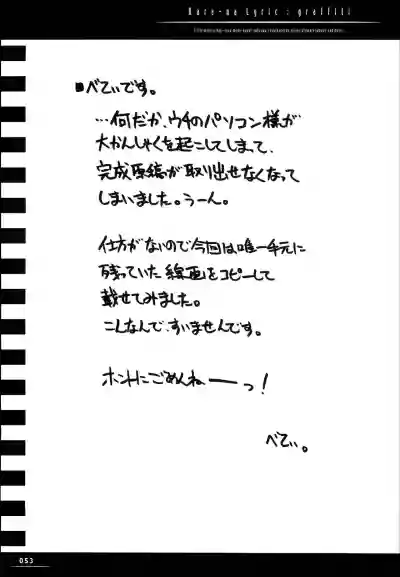 Kare-na Lyric : graffiti
■べてぃです。
…何だか、ウチのパソコン様が
大かんしゃくを起こしてしまって、
完成原稿が取り出せなくなって
しまいました。うーん。
仕方がないので今回は唯一手元に
残っていた線画をコピーして
載せてみました。
こんなんで、すいませんです。
ホントにごめんねーーっ!
べてぃ。
053